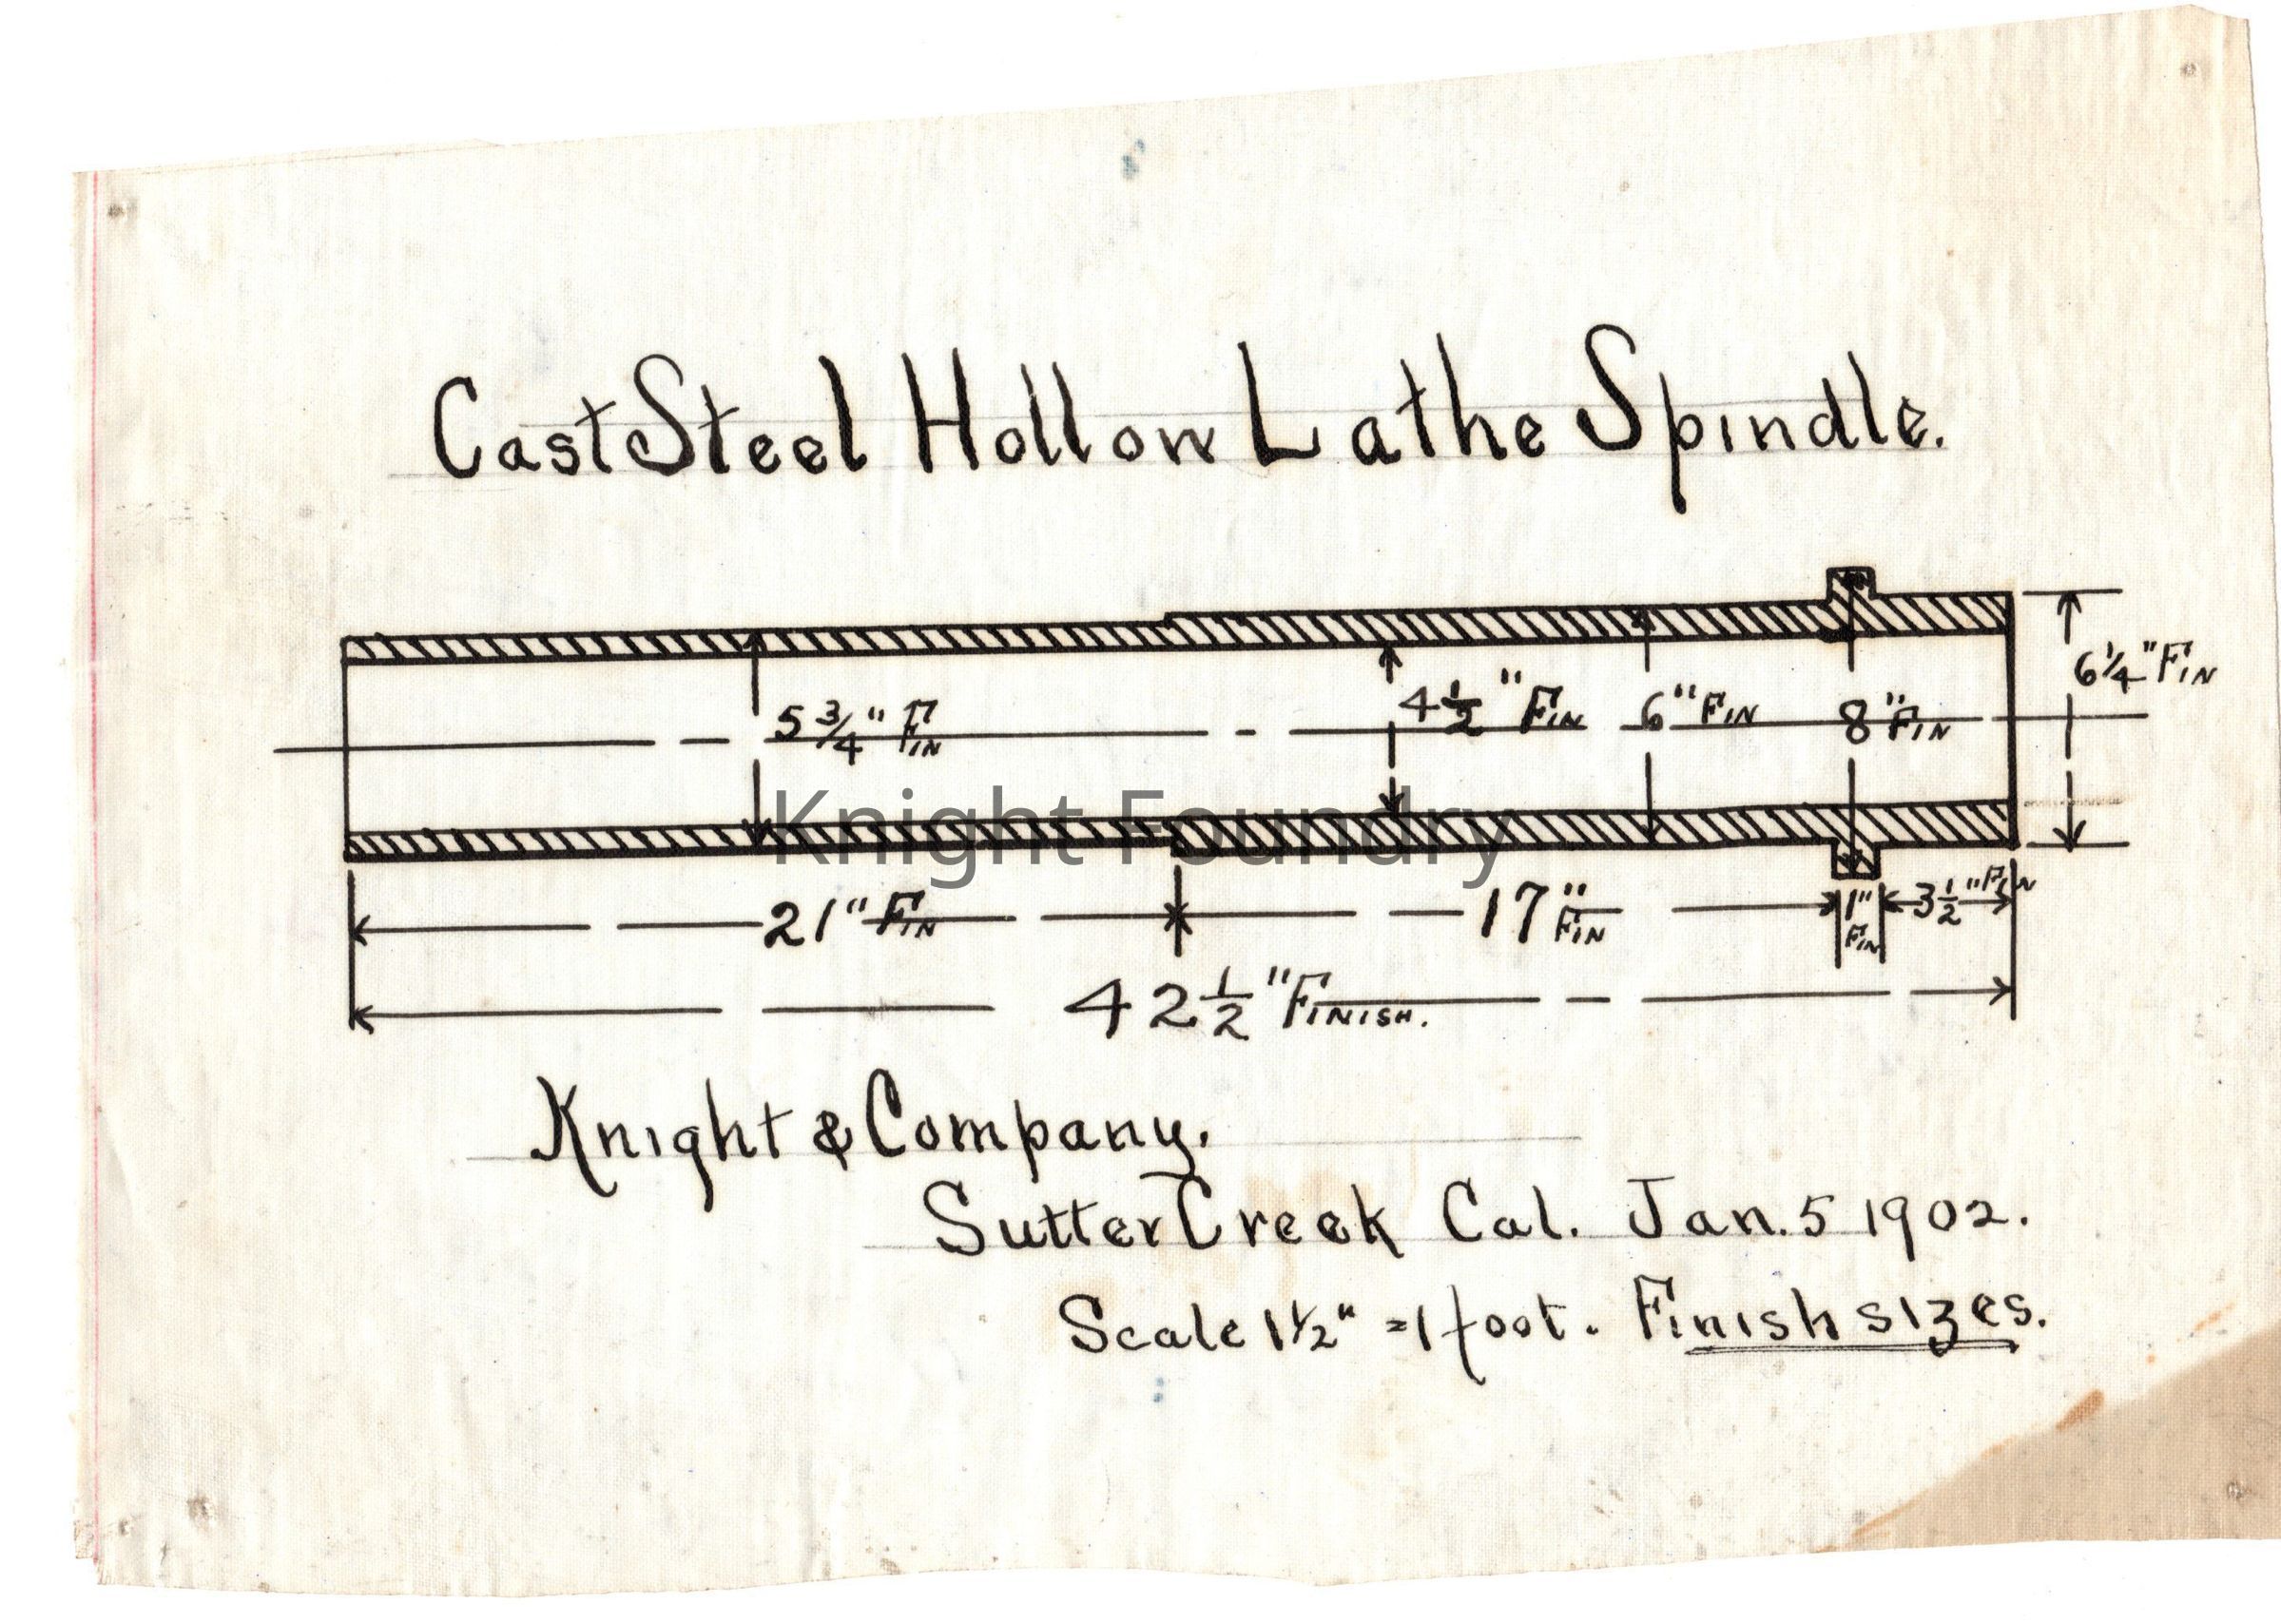 Cast Steel Hollow Lathe Spindle.
5 3/4" Fin
4 1/2" Fin
6" Fin
8" Fin
6 1/4" Fin
Knight Foundry
21" Fin
17" Fin
1" Fin
3 1/2" Fin
42 1/2" Finish.
Knight & Company.
Sutter Creek Cal. Jan. 5 1902.
Scale 1 1/2" = 1 foot. Finish sizes.